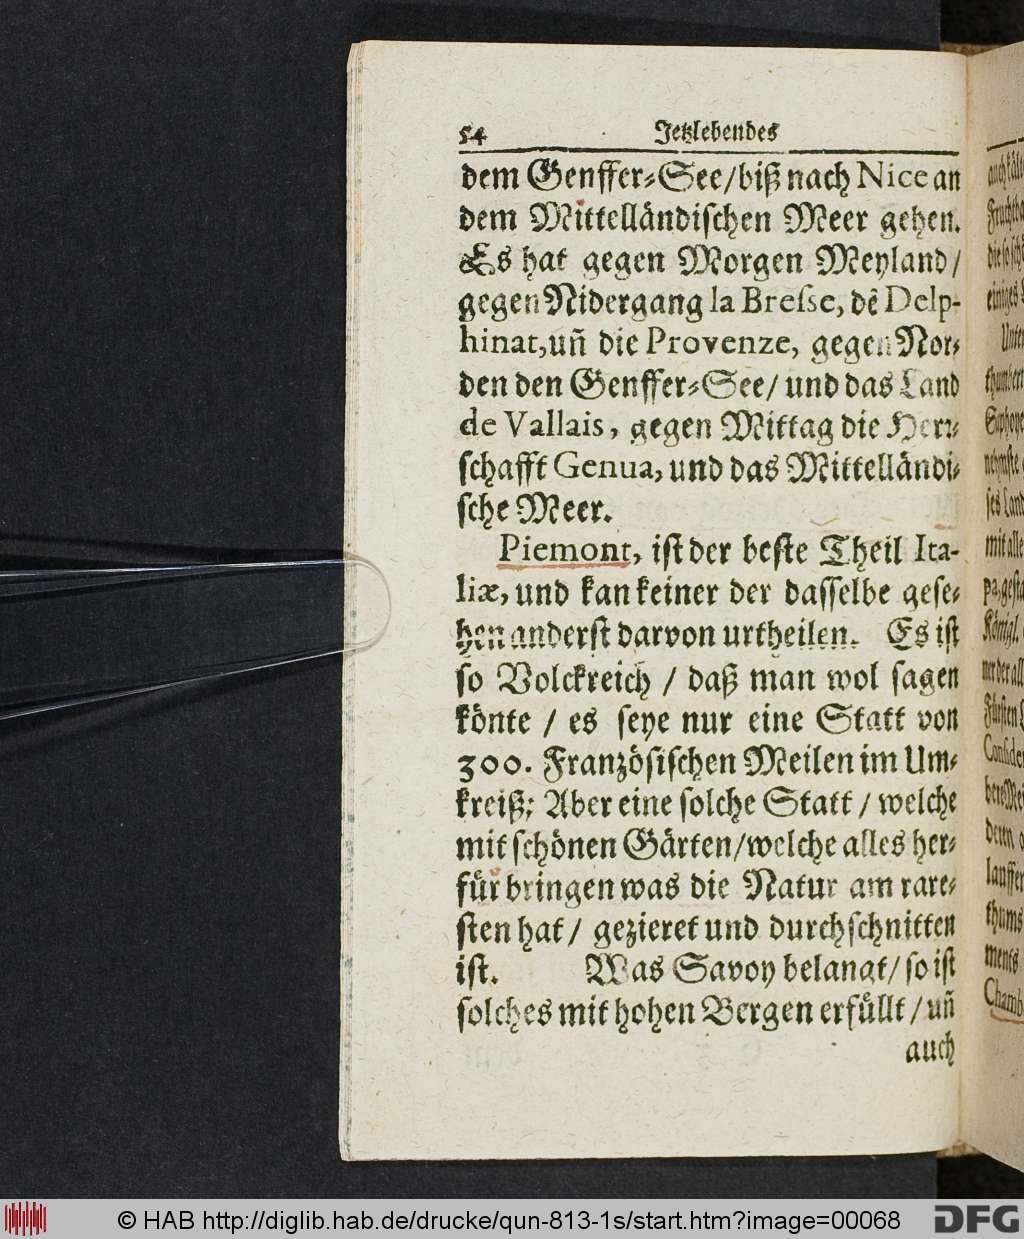 54 Jetzlebendes
dem Genffer-See/biß nach Nice an
dem Mittelländischen Meer gehen.
Es hat gegen Morgen Meyland/
gegen Nidergang la Bresse, dẽ Delp-
hinat, uñ die Provenze, gegen Nor-
den den Genffer-See/ und das Land
de Vallais, gegen Mittag die Herr-
schafft Genua, und das Mittelländi-
sche Meer.
Piemont, ist der beste Theil Ita-
liæ, und kan keiner der dasselbe gese-
hen anderst darvon urtheilen. Es ist
so Volckreich / daß man wol sagen
könte / es seye nur eine Statt von
300. Französischen Meilen im Um-
kreiß; Aber eine solche Statt / welche
mit schönen Gärten/welche alles her-
für bringen was die Natur am rare-
sten hat / gezieret und durchschnitten
ist. Was Savoy belangt/ so ist
solches mit hohen Bergen erfüllt / uñ
auch
© HAB http://diglib.hab.de/drucke/qun-813-1s/start.htm?image=00068
DFG